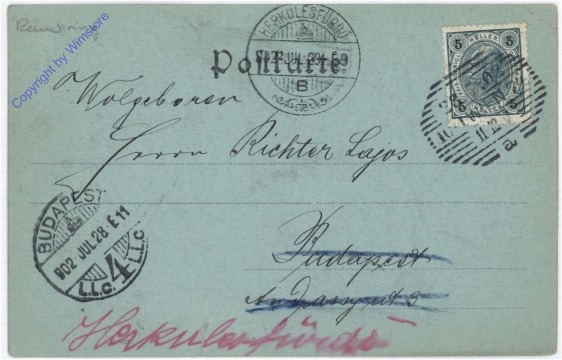 Copyright by Wimstore
HERKULESFÜRDŐ
902 JUL 29 E 9
B
Postkarte.
HELLER
5 5
5 5
a
Wolgeboren
Herrn Richter Lajos
BUDAPEST
902 JUL 28 E 11
4
L.L.C. L.L.C.
Budapest
Andrassy ut 3
Herkulesfürdő